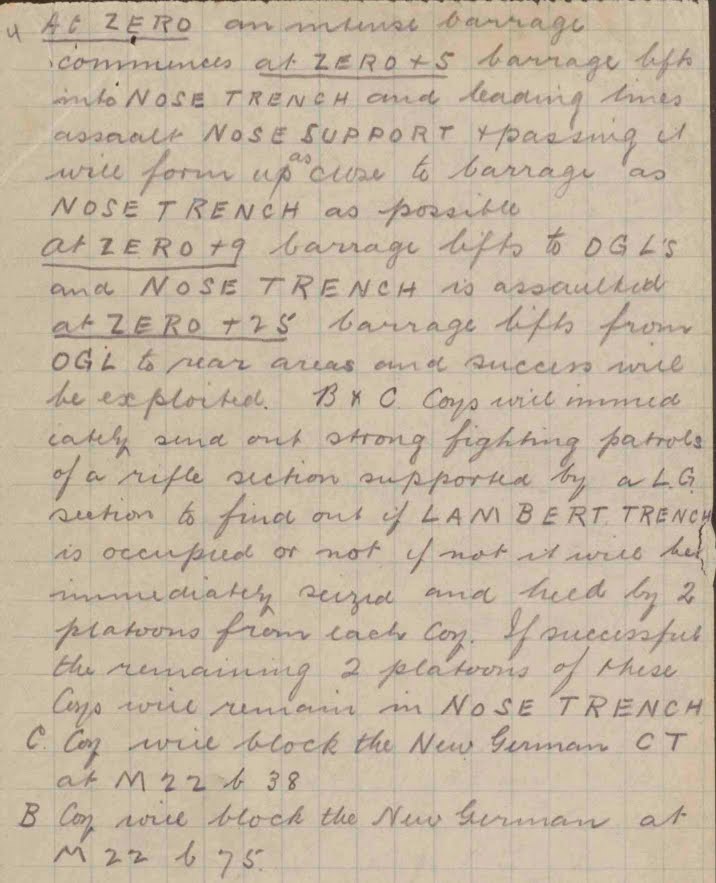 4 At ZERO an intense barrage
commences at ZERO + 5 barrage lifts
into NOSE TRENCH and leading lines
assault NOSE SUPPORT + passing it
will form up as close to barrage as
NOSE TRENCH as possible
at ZERO + 9 barrage lifts to OGL's
and NOSE TRENCH is assaulted
at ZERO + 25 barrage lifts from
OGL to rear areas and success will
be exploited. B & C. Coys will immed
iately send out strong fighting patrols
of a rifle section supported by a L.G.
section to find out if LAMBERT. TRENCH
is occupied or not if not it will be
immediately seized and held by 2
platoons from each Coy. If successful
the remaining 2 platoons of these
Coys will remain in NOSE TRENCH
C. Coy will block the New German CT
at M 22 b 38
B Coy will block the New German at
M 22 b 75.